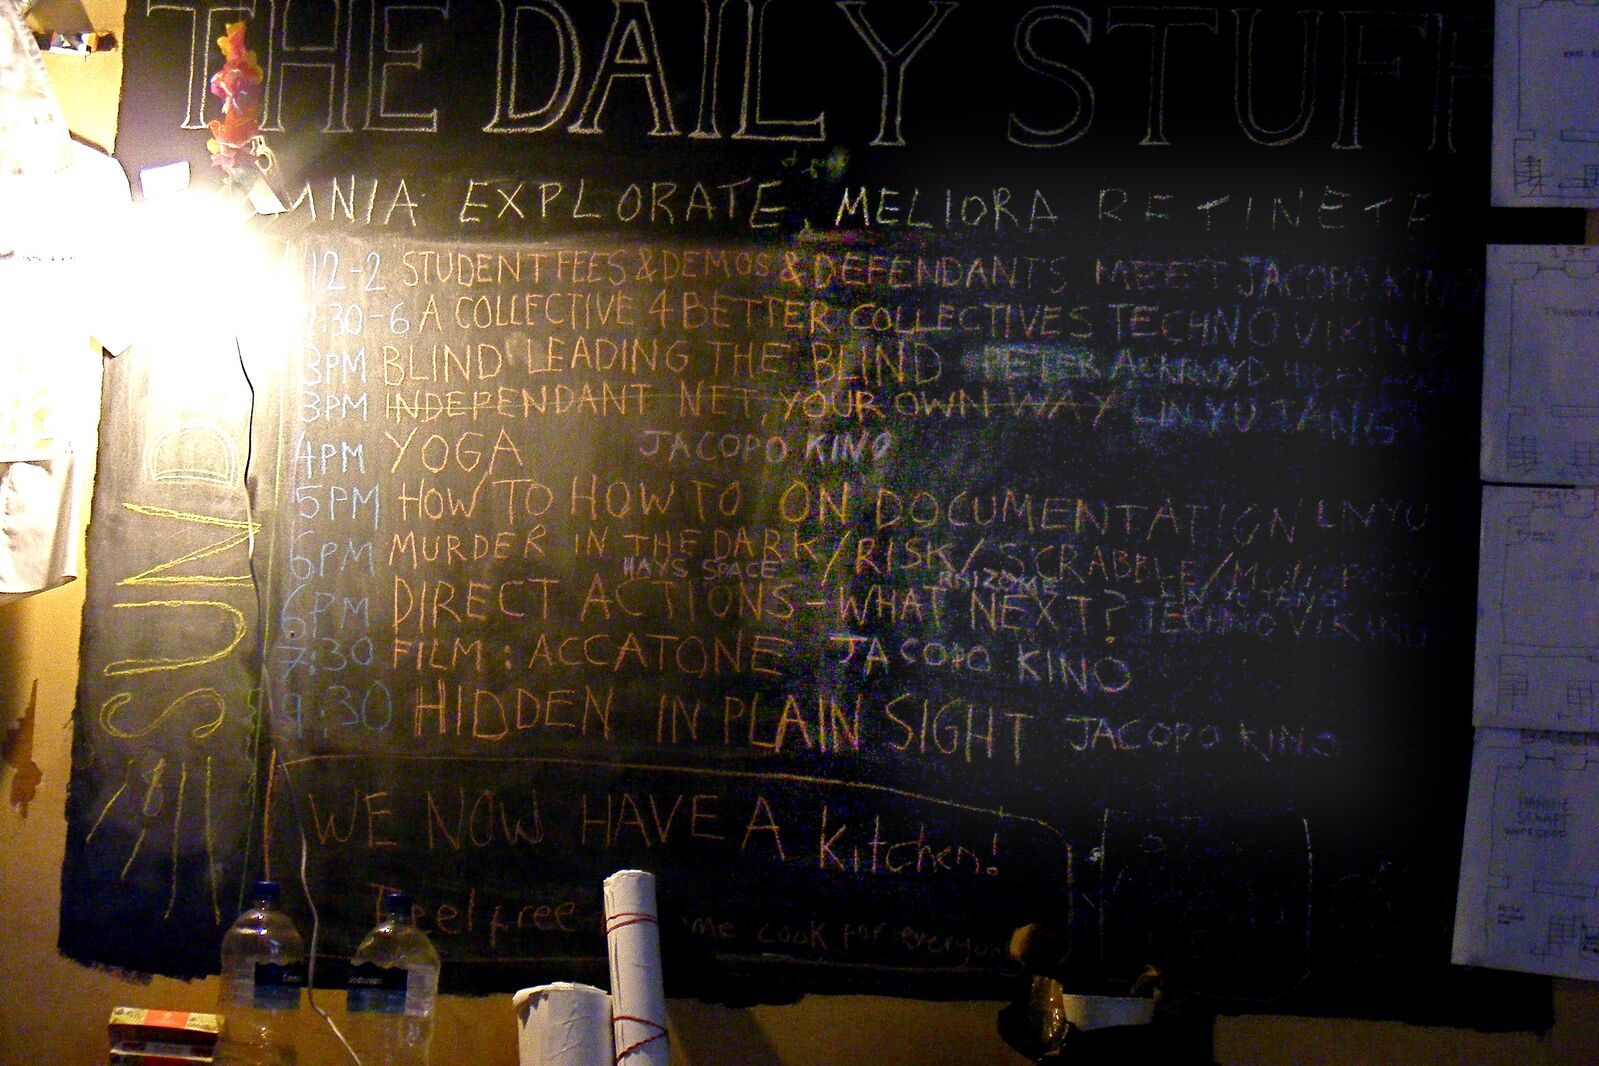 THE DAILY STUFF
MNIA EXPLORATE MELIORA RETINETE
12-2 STUDENT FEES & DEMOS & DEFENDANTS MEET JACOPO KINO
:30-6 A COLLECTIVE 4 BETTER COLLECTIVES TECHNO VIKING
3PM BLIND LEADING THE BLIND PETER ACKROYD
3PM INDEPENDANT NET, YOUR OWN WAY LIN YU TANG
4PM YOGA JACOPO KINO
5PM HOW TO HOW TO ON DOCUMENTATION LIN YU
6PM MURDER IN THE DARK/RISK/SCRABBLE/MONOPOLY
HAYS SPACE RHIZOME LIN YU TANG
6PM DIRECT ACTIONS-WHAT NEXT? TECHNO VIKING
7:30 FILM: ACCATONE JACOPO KINO
9:30 HIDDEN IN PLAIN SIGHT JACOPO KINO
SUND
WE NOW HAVE A Kitchen!
Feel free me cook for everyone
HANNIE SCHAFT WORKSHOP